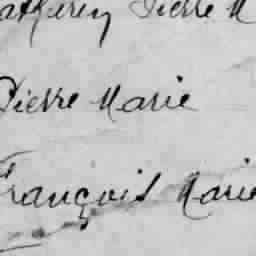 Pierre M
Pierre Marie
François Marie